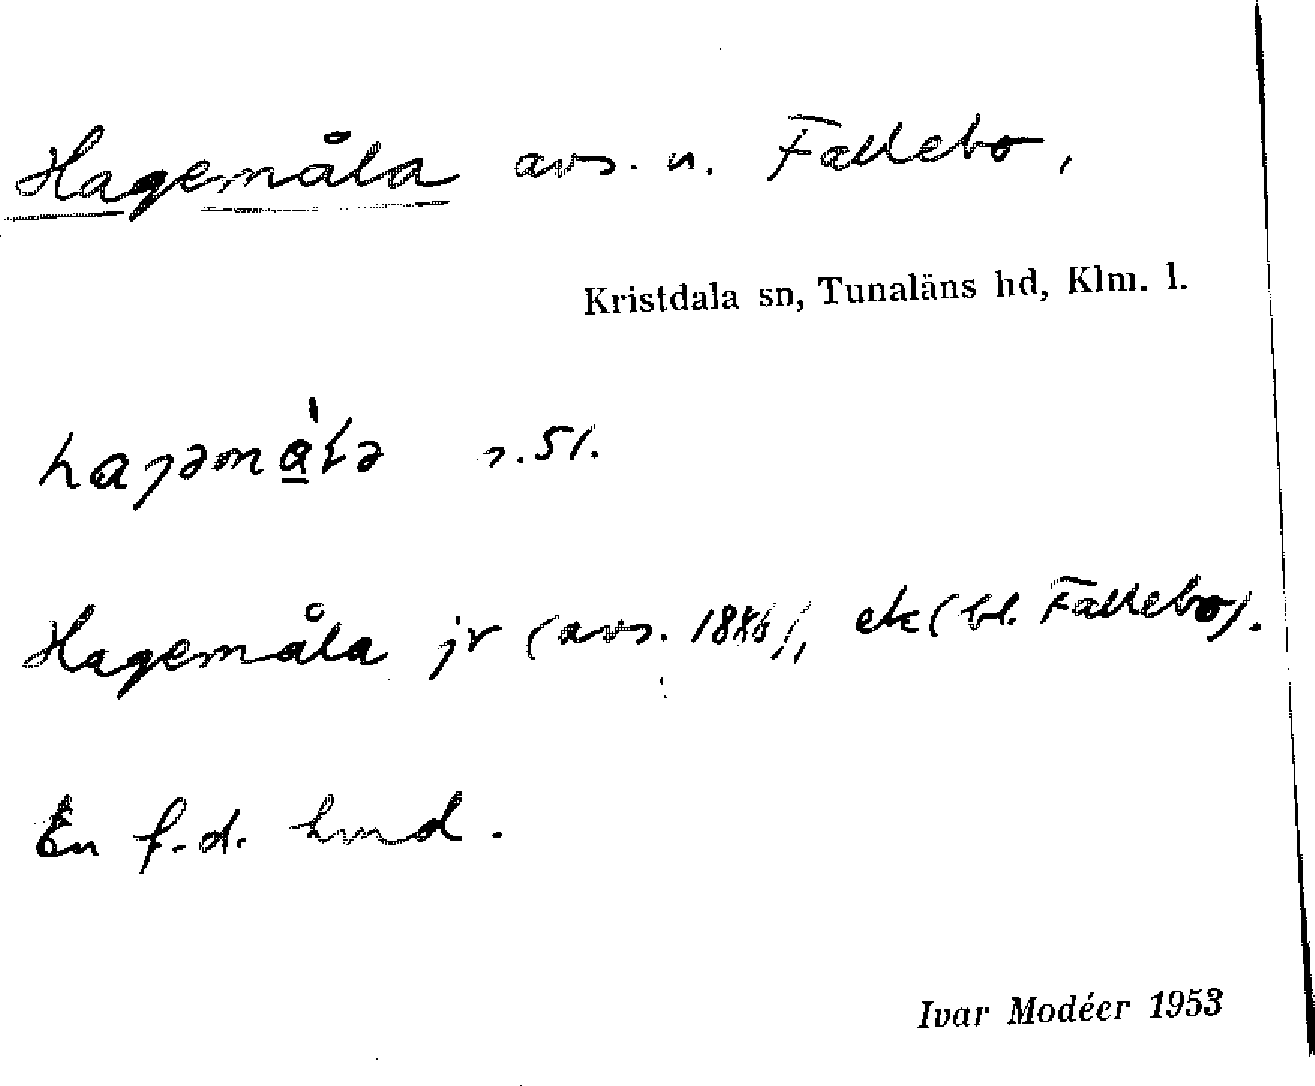 Hagemåla avs. u. Fallebo,
Kristdala sn, Tunaläns hd, Klm. l.
s. 51.
Hagemåla jr (avs. 1886), ek (bl. Fallebo).
En f.d. lmd.
Ivar Modéer 1953